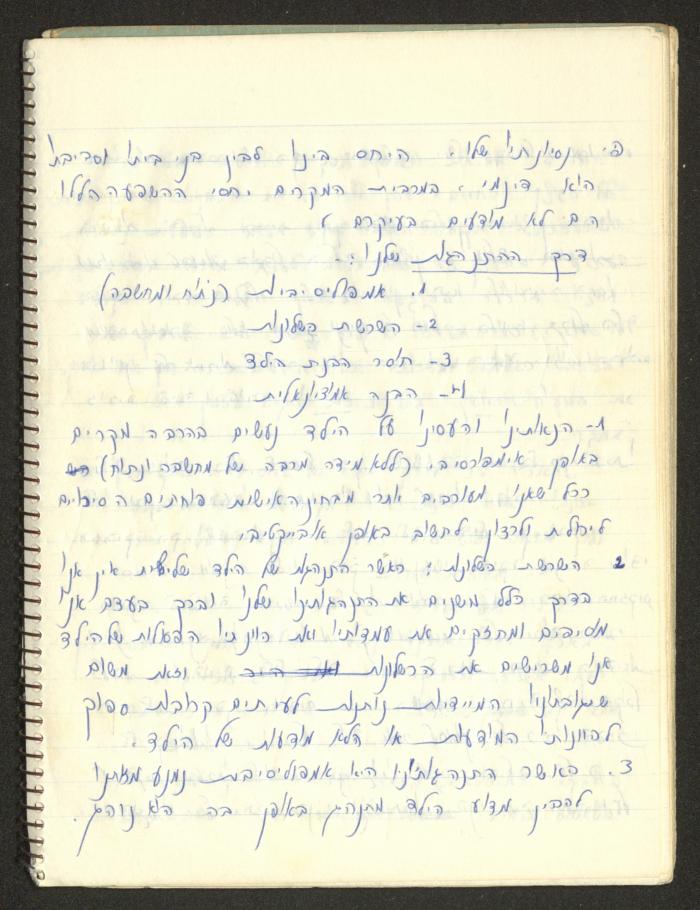 היחס בינו לבין בני ביתו וסביבתו
הוא דינמי. במרבית המקרים יחסי ההשפעה הללו
הם לא מודעים בעיקרם
דרך ההתנהגות שלנו :-
1. אמפולסיביות (ומחשבה)
2- השרשת כשלונות
3- חוסר הבנת הילד
הבנה אמוציונאלית
1- ורעסינו על הילד נעשים בהרבה מקרים
באופן אימפולסיבי. (ללא מידה מרבה של מחשבה ונתוח)
ככל שאנו מעורבים יותר מבחינה אישית פוחתים הסיכויים
ליכולת ולרצון לחשוב באופן אובייקטיבי.
2 השרשת כשלונות: כאשר התנהגות של הילד שלילית אין אנו
בדרך כלל משנים את התנהגותינו שלנו ובכך בעצם אנו
מוסיפים ומחזקים את עמדותיו ואת כוונתיו הפעלות של הילד
אנו משרישים את הכשלונות וזאת משום
שתגובותינו המיידיות נותנות לעיתים קרובות ספוק
לכוונותיו המודעות או הלא מודעות של הילד.
3. כאשר התנהגותינו היא אמפולסיבית נמנע מאתנו
להבין מדוע הילד מתנהג באופן בה הוא נוהג.